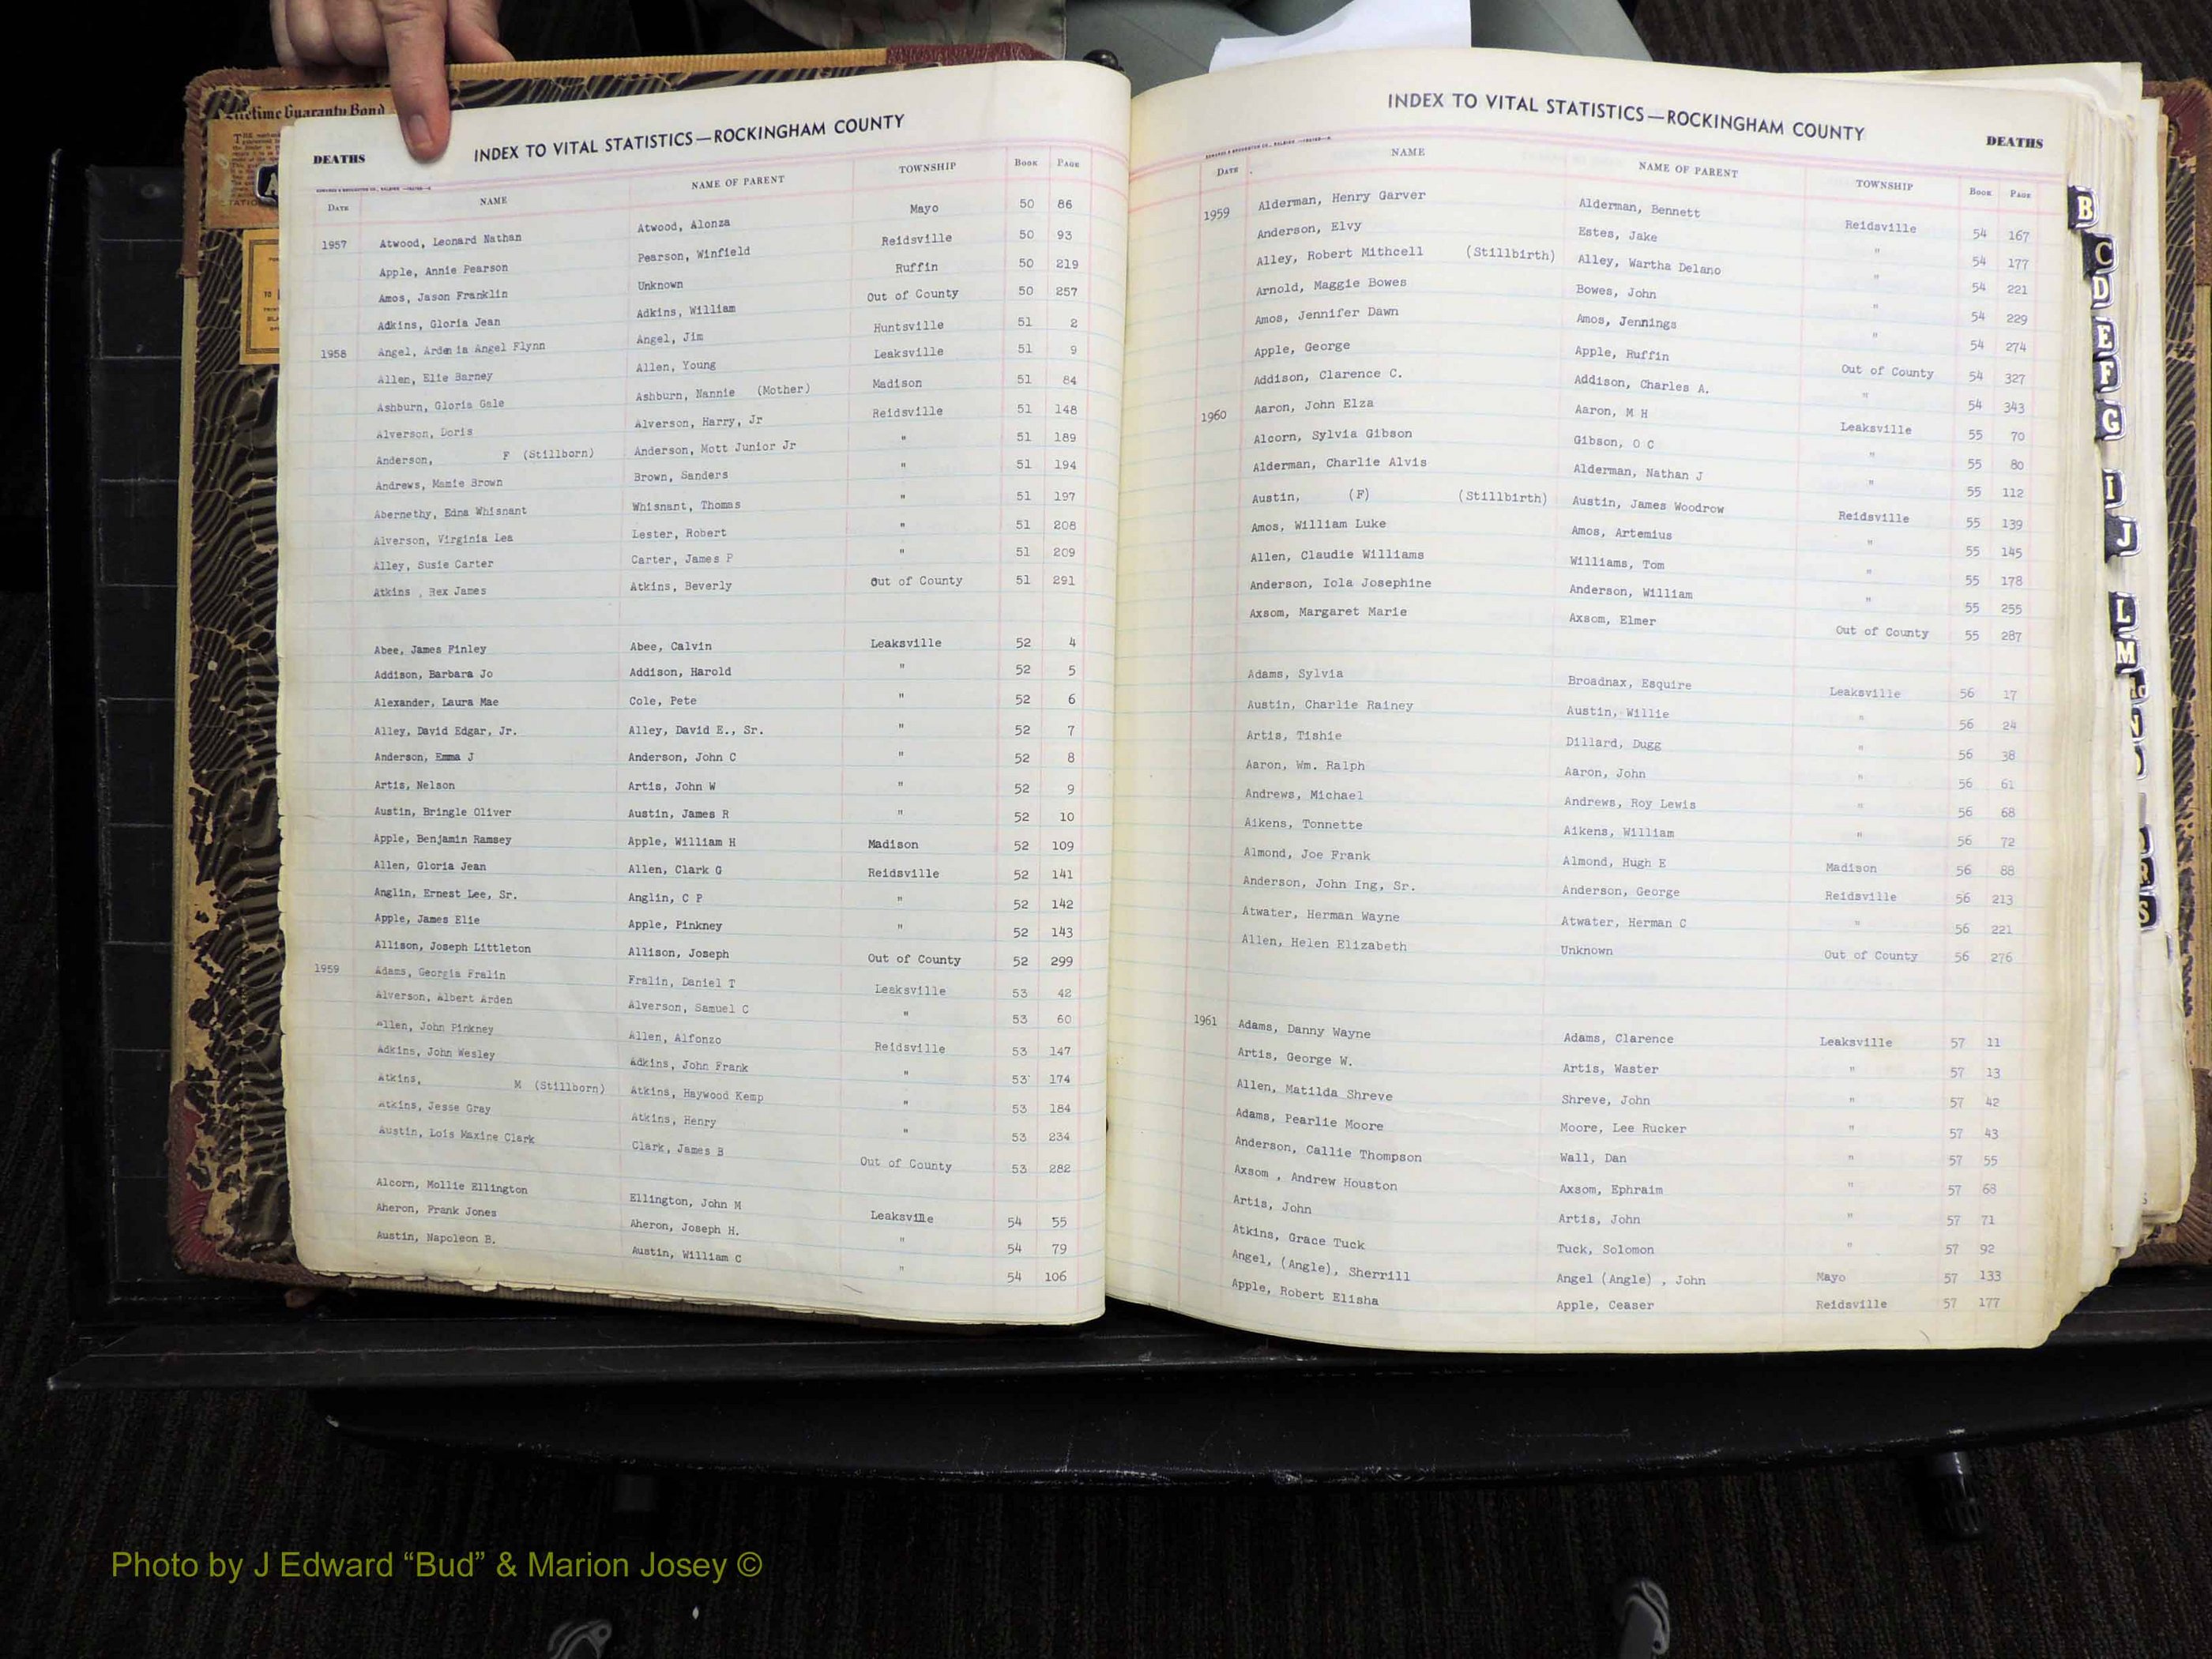 Lifetime Guaranty Bond
DEATHS
INDEX TO VITAL STATISTICS—ROCKINGHAM COUNTY
DATE NAME NAME OF PARENT TOWNSHIP BOOK PAGE
1957 Atwood, Leonard Nathan Atwood, Alonza Mayo 50 86
Apple, Annie Pearson Pearson, Winfield Reidsville 50 93
Amos, Jason Franklin Unknown Ruffin 50 219
Adkins, Gloria Jean Adkins, William Out of County 50 257
1958 Angel, Ardenia Angel Flynn Angel, Jim Huntsville 51 2
Allen, Elie Barney Allen, Young Leaksville 51 9
Ashburn, Gloria Gale Ashburn, Nannie (Mother) Madison 51 84
Alverson, Doris Alverson, Harry, Jr Reidsville 51 148
Anderson, F (Stillborn) Anderson, Mott Junior Jr " 51 189
Andrews, Mamie Brown Brown, Sanders " 51 194
Abernethy, Edna Whisnant Whisnant, Thomas " 51 197
Alverson, Virginia Lea Lester, Robert " 51 208
Alley, Susie Carter Carter, James P " 51 209
Atkins , Rex James Atkins, Beverly Out of County 51 291
Abee, James Finley Abee, Calvin Leaksville 52 4
Addison, Barbara Jo Addison, Harold " 52 5
Alexander, Laura Mae Cole, Pete " 52 6
Alley, David Edgar, Jr. Alley, David E., Sr. " 52 7
Anderson, Emma J Anderson, John C " 52 8
Artis, Nelson Artis, John W " 52 9
Austin, Bringle Oliver Austin, James R " 52 10
Apple, Benjamin Ramsey Apple, William H Madison 52 109
Allen, Gloria Jean Allen, Clark G Reidsville 52 141
Anglin, Ernest Lee, Sr. Anglin, C P " 52 142
Apple, James Elie Apple, Pinkney " 52 143
Allison, Joseph Littleton Allison, Joseph Out of County 52 299
1959 Adams, Georgia Fralin Fralin, Daniel T Leaksville 53 42
Alverson, Albert Arden Alverson, Samuel C " 53 60
Allen, John Pinkney Allen, Alfonzo Reidsville 53 147
Adkins, John Wesley Adkins, John Frank " 53 174
Atkins, M (Stillborn) Atkins, Haywood Kemp " 53 184
Atkins, Jesse Gray Atkins, Henry " 53 234
Austin, Lois Maxine Clark Clark, James B Out of County 53 282
Alcorn, Mollie Ellington Ellington, John M Leaksville 54 55
Aheron, Frank Jones Aheron, Joseph H. " 54 79
Austin, Napoleon B. Austin, William C " 54 106
INDEX TO VITAL STATISTICS—ROCKINGHAM COUNTY
DEATHS
DATE NAME NAME OF PARENT TOWNSHIP BOOK PAGE
1959 Alderman, Henry Garver Alderman, Bennett Reidsville 54 167
Anderson, Elvy Estes, Jake " 54 177
Alley, Robert Mithcell (Stillbirth) Alley, Wartha Delano " 54 221
Arnold, Maggie Bowes Bowes, John " 54 229
Amos, Jennifer Dawn Amos, Jennings " 54 274
Apple, George Apple, Ruffin Out of County 54 327
Addison, Clarence C. Addison, Charles A. " 54 343
1960 Aaron, John Elza Aaron, M H Leaksville 55 70
Alcorn, Sylvia Gibson Gibson, O C " 55 80
Alderman, Charlie Alvis Alderman, Nathan J " 55 112
Austin, (F) (Stillbirth) Austin, James Woodrow Reidsville 55 139
Amos, William Luke Amos, Artemius " 55 145
Allen, Claudie Williams Williams, Tom " 55 178
Anderson, Iola Josephine Anderson, William " 55 255
Axsom, Margaret Marie Axsom, Elmer Out of County 55 287
Adams, Sylvia Broadnax, Esquire Leaksville 56 17
Austin, Charlie Rainey Austin, Willie " 56 24
Artis, Tishie Dillard, Dugg " 56 38
Aaron, Wm. Ralph Aaron, John " 56 61
Andrews, Michael Andrews, Roy Lewis " 56 68
Aikens, Tonnette Aikens, William " 56 72
Almond, Joe Frank Almond, Hugh E Madison 56 88
Anderson, John Ing, Sr. Anderson, George Reidsville 56 213
Atwater, Herman Wayne Atwater, Herman C " 56 221
Allen, Helen Elizabeth Unknown Out of County 56 276
1961 Adams, Danny Wayne Adams, Clarence Leaksville 57 11
Artis, George W. Artis, Waster " 57 13
Allen, Matilda Shreve Shreve, John " 57 42
Adams, Pearlie Moore Moore, Lee Rucker " 57 43
Anderson, Callie Thompson Wall, Dan " 57 55
Axsom , Andrew Houston Axsom, Ephraim " 57 68
Artis, John Artis, John " 57 71
Atkins, Grace Tuck Tuck, Solomon " 57 92
Angel, (Angle), Sherrill Angel (Angle) , John Mayo 57 133
Apple, Robert Elisha Apple, Ceaser Reidsville 57 177
B
C
D
E
F
G
I
J
L
M
N
R
S
Photo by J Edward “Bud” & Marion Josey ©